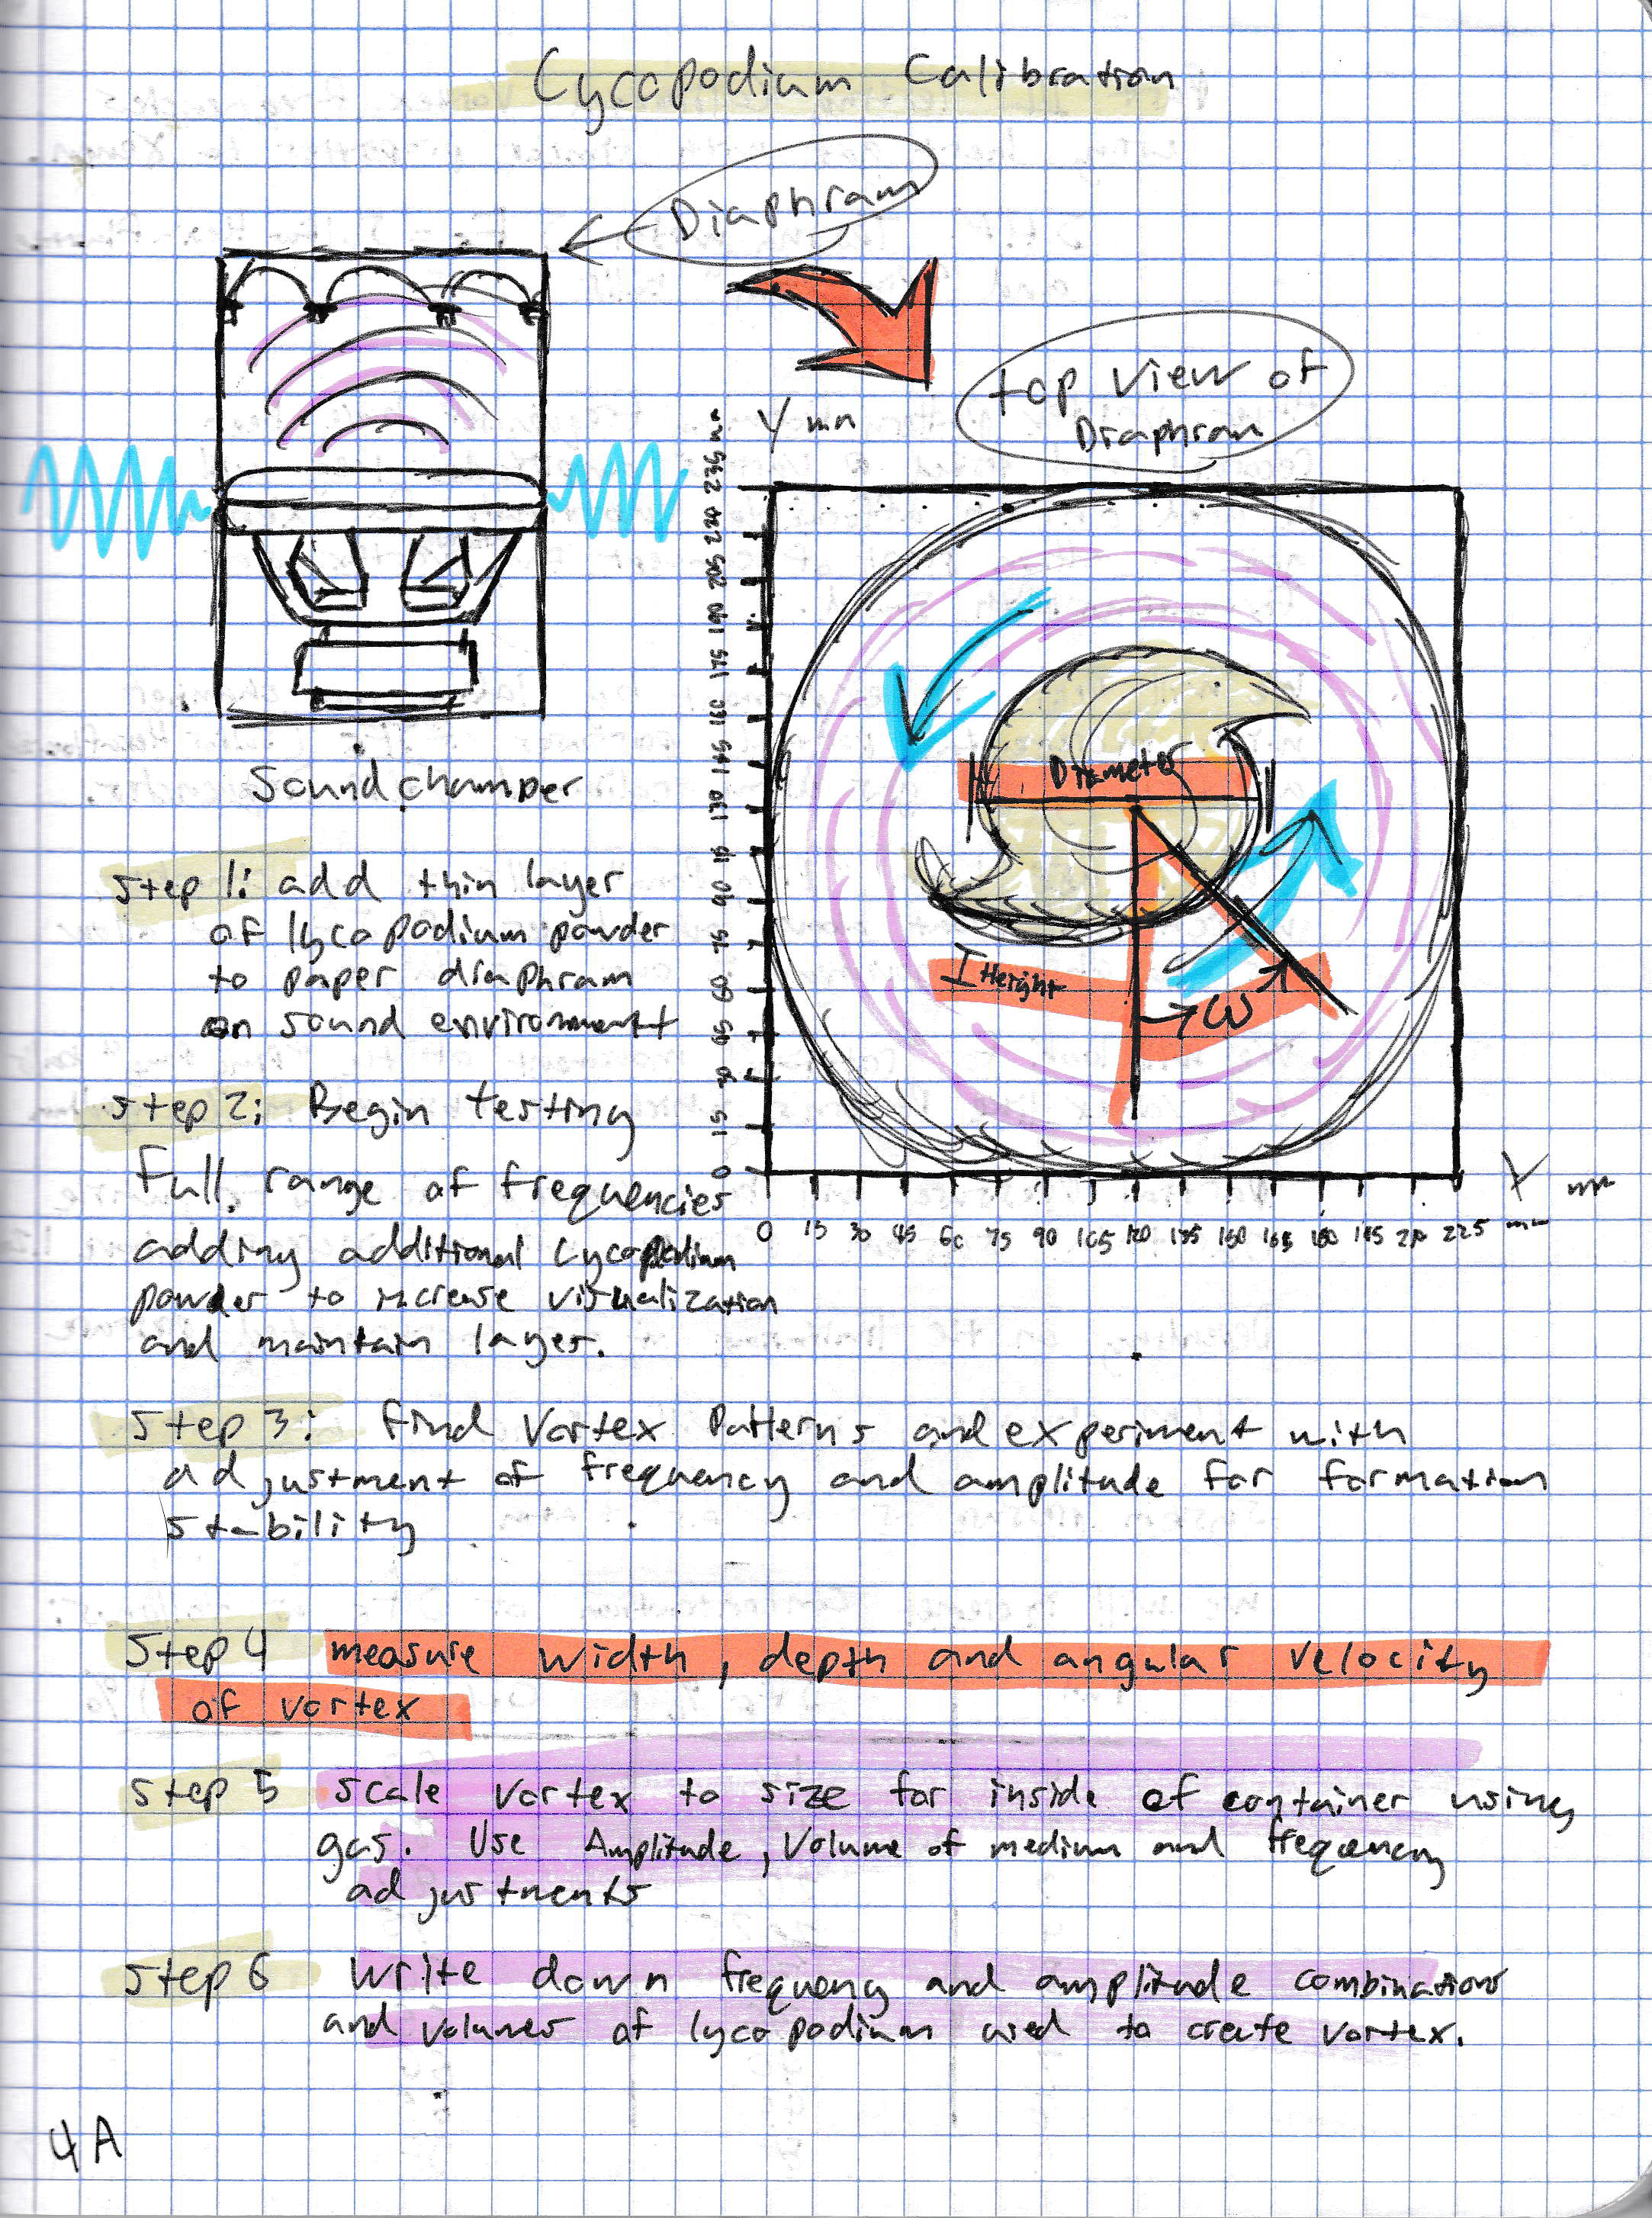 Lycopodium Calibration
Diaphram
top view of
Diaphram
Y mm
Sound champer
Diameter
I Height
ω
225
210
205
190
175
160
145
130
115
90
75
60
45
30
15
0
X mm
0 15 30 45 60 75 90 105 120 135 150 165 180 195 210 225 mm
Step 1: add thin layer
of lycopodium powder
to paper diaphram
on sound environment
Step 2: Begin testing
Full range of frequencies
adding additional Lycopodium
powder to increase visualization
and maintain layer.
Step 3: find Vortex Patterns and experiment with
adjustment of frequency and amplitude for formation
stability
Step 4 measure width, depth and angular velocity
of vortex
Step 5 scale vortex to size for inside of container using
gas. Use Amplitude, Volume of medium and frequency
adjustments
Step 6 Write down frequency and amplitude combinations
and volumes of lycopodium used to create vortex.
4A